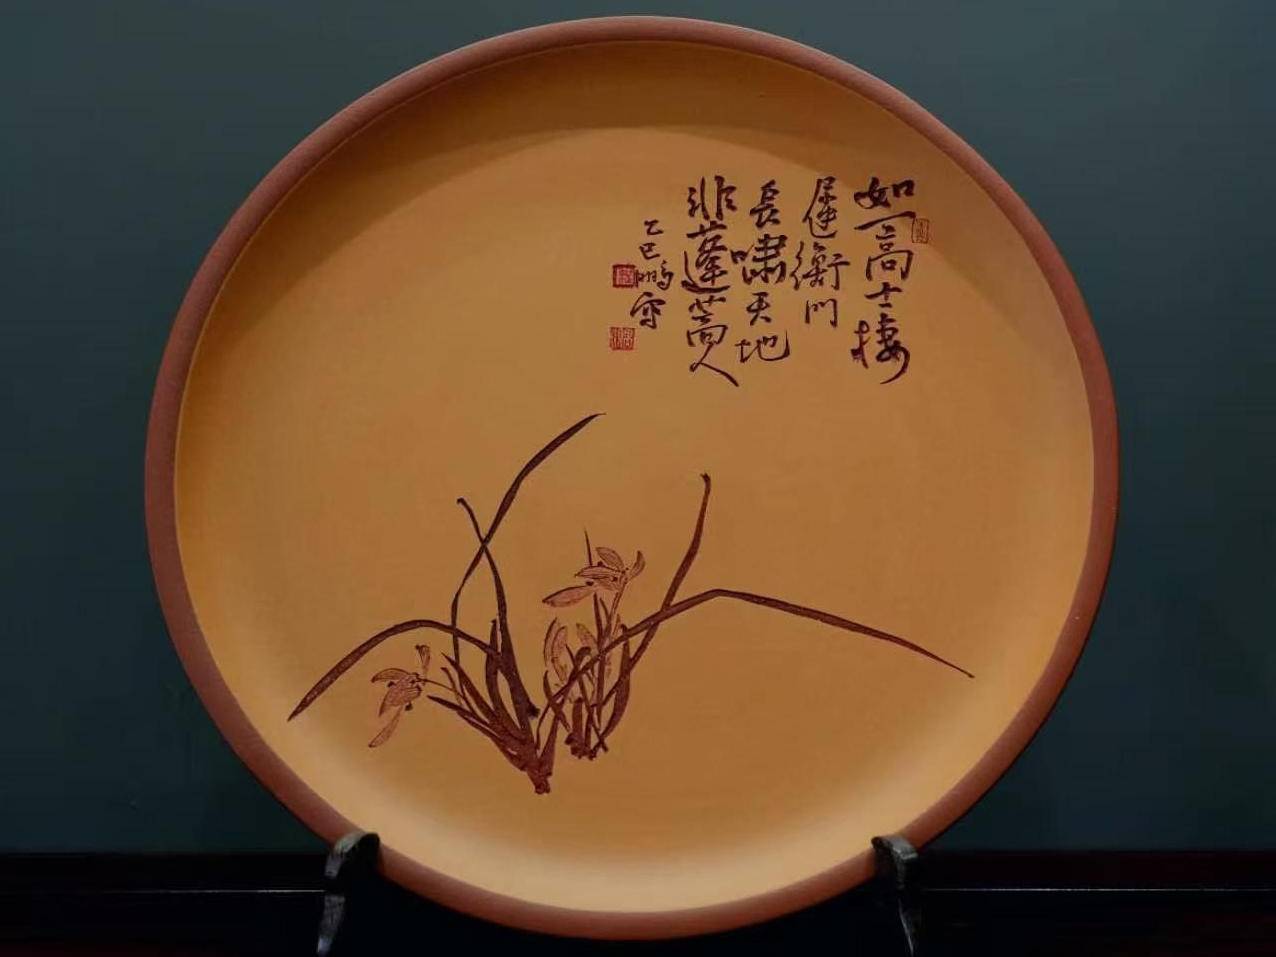 如高士棲
遲衡門
長嘯天地
非蓬蒿人
乙巳鵬寫